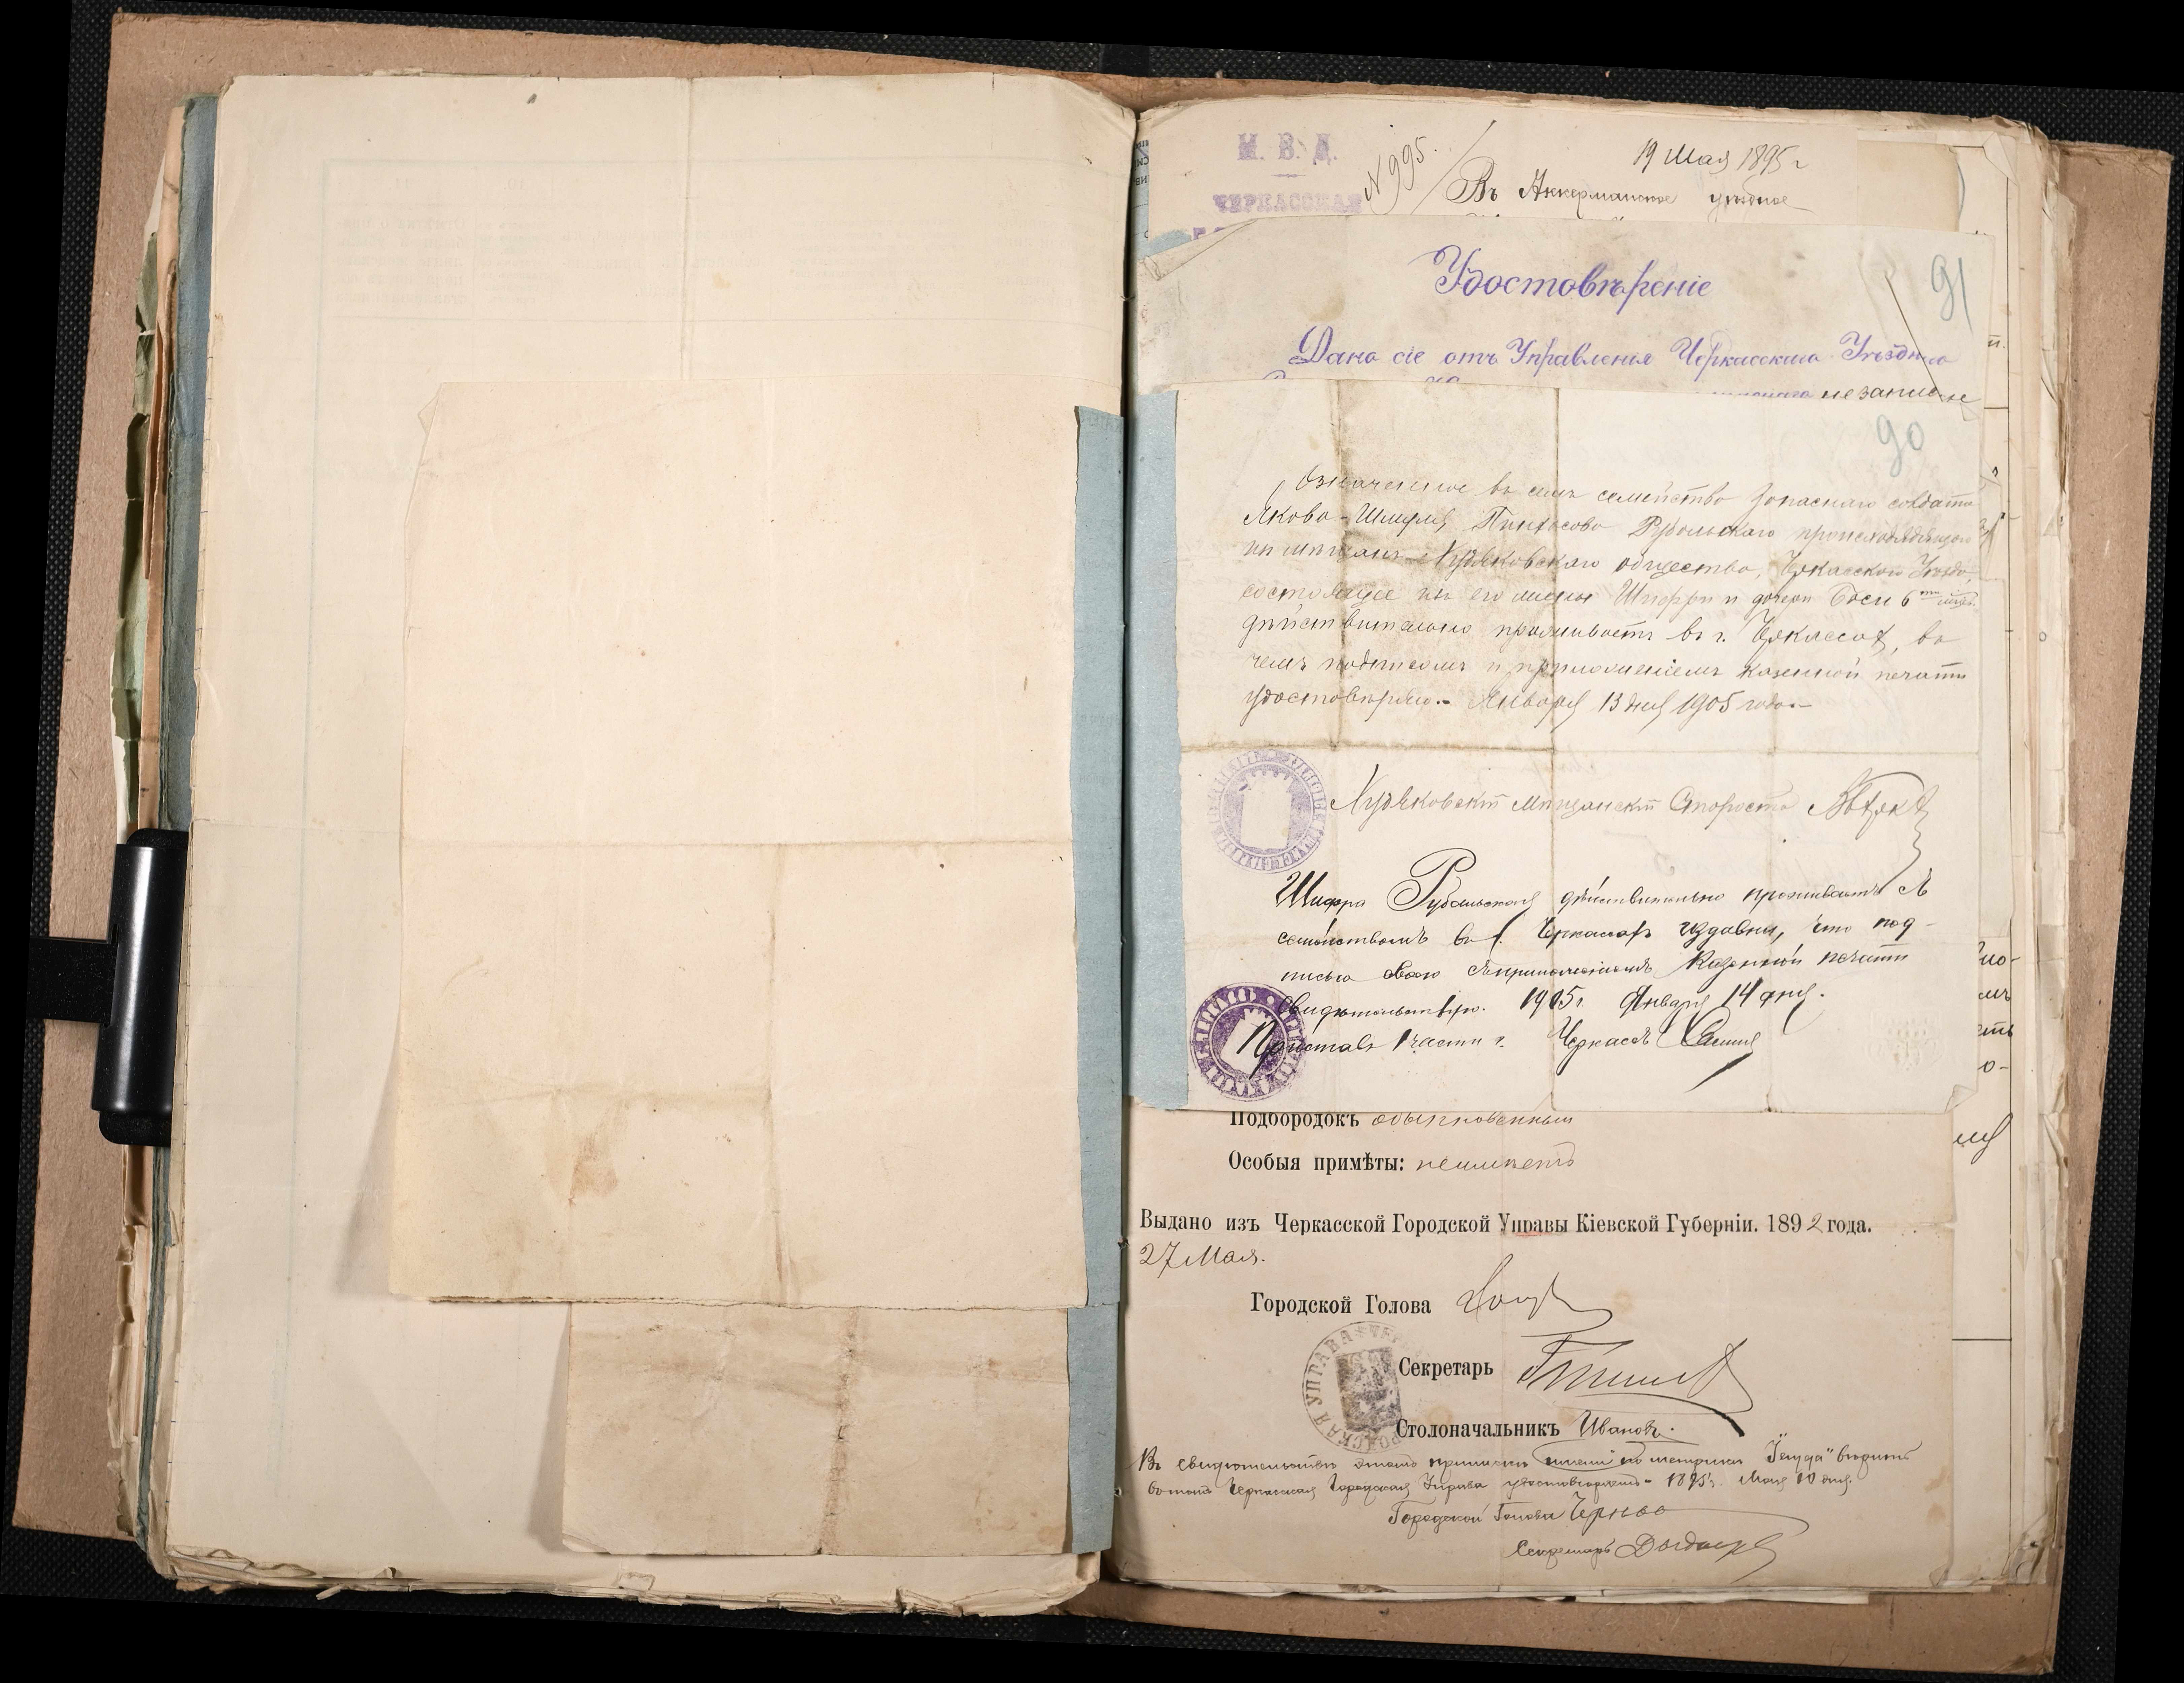 М. В. Д.
ЧЕРКАССКАЯ
N 995.
19 Мая 1895 г
Въ Аккерманское уѣздное
Удостовѣреніе
91
Дано сіе отъ Управленія Черкасскаго Уѣзднаго
незаписан
90
Означенное въ семъ семейство запаснаго солдата
Якова-Шмуля Пинхасова Рубальскаго происходящаго
изъ мѣщанъ общества, Черкасскаго Уѣзда,
состоящее изъ его жены Шифры и дочери Баси 6
дѣйствительно проживаетъ въ г. Черкассах, въ
чемъ подписомъ и приложеніемъ казенной печати
удостовѣряю.- Января 13 дня 1905 года.-
Мѣщанскій Староста
Шифра Рубальская дѣйствительно проживаетъ съ
семействомъ въ г. Черкасахъ издавна, что под-
писью своею съ приложеніемъ казенной печати
свидѣтельствую. 1905 г. Января 14 дня.
Приставъ 1 части г. Черкассъ
Подбородокъ обыкновенный
Особыя примѣты: неимѣетъ
Выдано изъ Черкасской Городской Управы Кіевской Губерніи. 1892 года.
27 Мая.
Городской Голова
Секретарь
Столоначальникъ Ивановъ.
Въ свидѣтельствѣ этомъ имени по метрикѣ вѣрить
въ томъ Черкасская Городская Управа удостовѣряетъ- 1895 г. Мая 10 дня.
Городской Голова
Секретарь